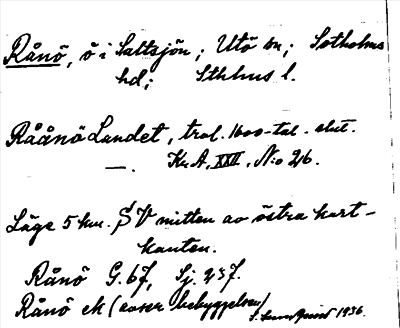 Rånö, ö i Saltsjön; Utö sn; Sotholms
hd; Sthlms l.
Råånö Landet, trol. 1600-tal. slut.
—. Kr. A, XXII, N:o 26.
Läge 5 km. SV mitten av östra kart-
kanten.
Rånö G. 67, Sj. 237.
Rånö ek (avser bebyggelsen)
1936.